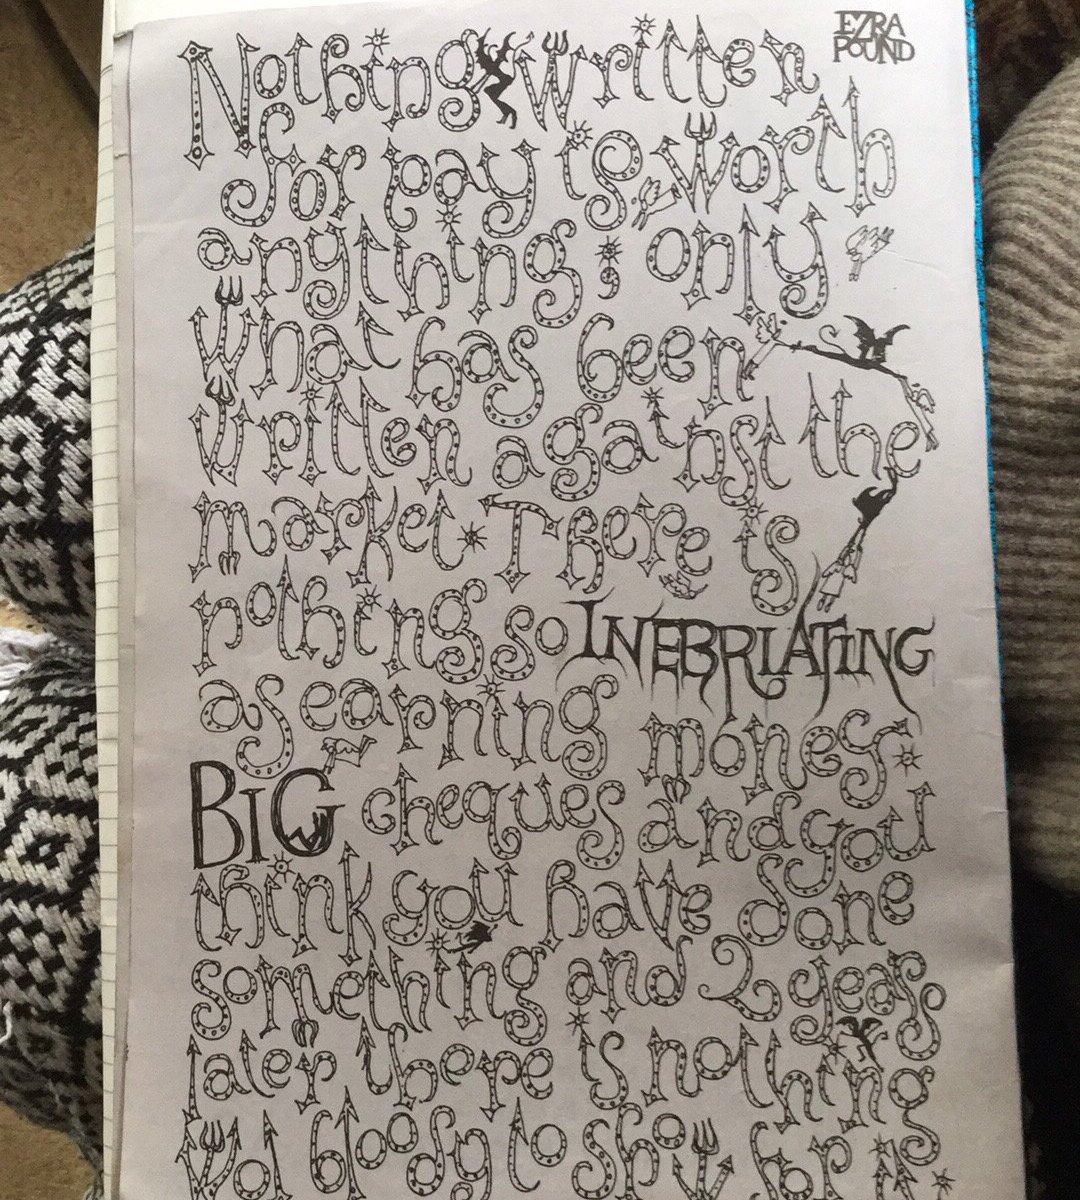 EZRA
POUND
Nothing written
for pay is worth
anything; only
what has been
written against the
market. There is
nothing so INEBRIATING
as earning money.
BIG cheques and you
think you have done
something and 2 years
later there is nothing
wot bloody to show for it.